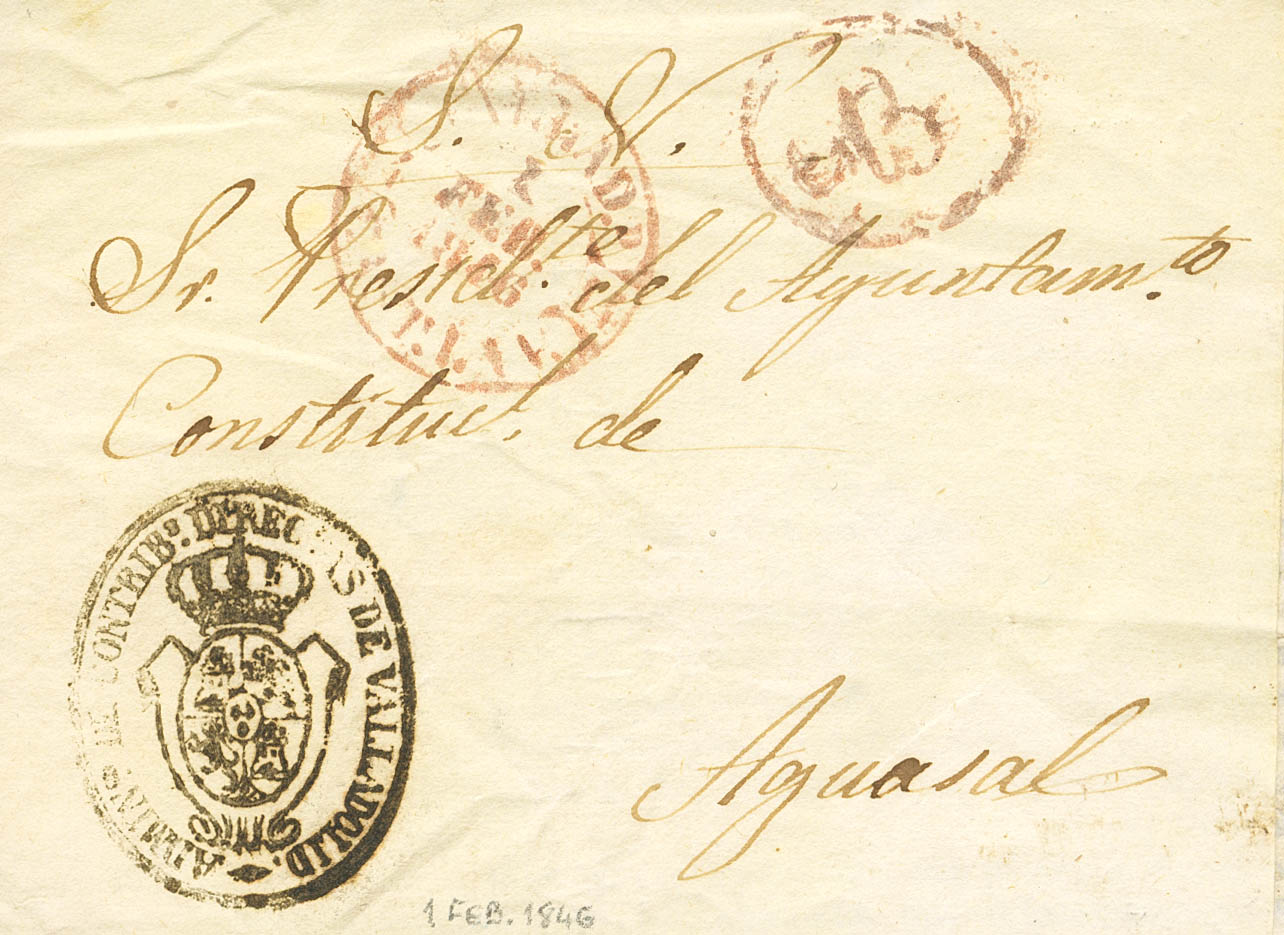 S. N.
Sr. Presid.te del Ayuntam.to
Constitucl. de
Aguasal
DE CONTRIB.s DIRECTAS DE VALLADOLID.
FEB
1846
1 FEB. 1846